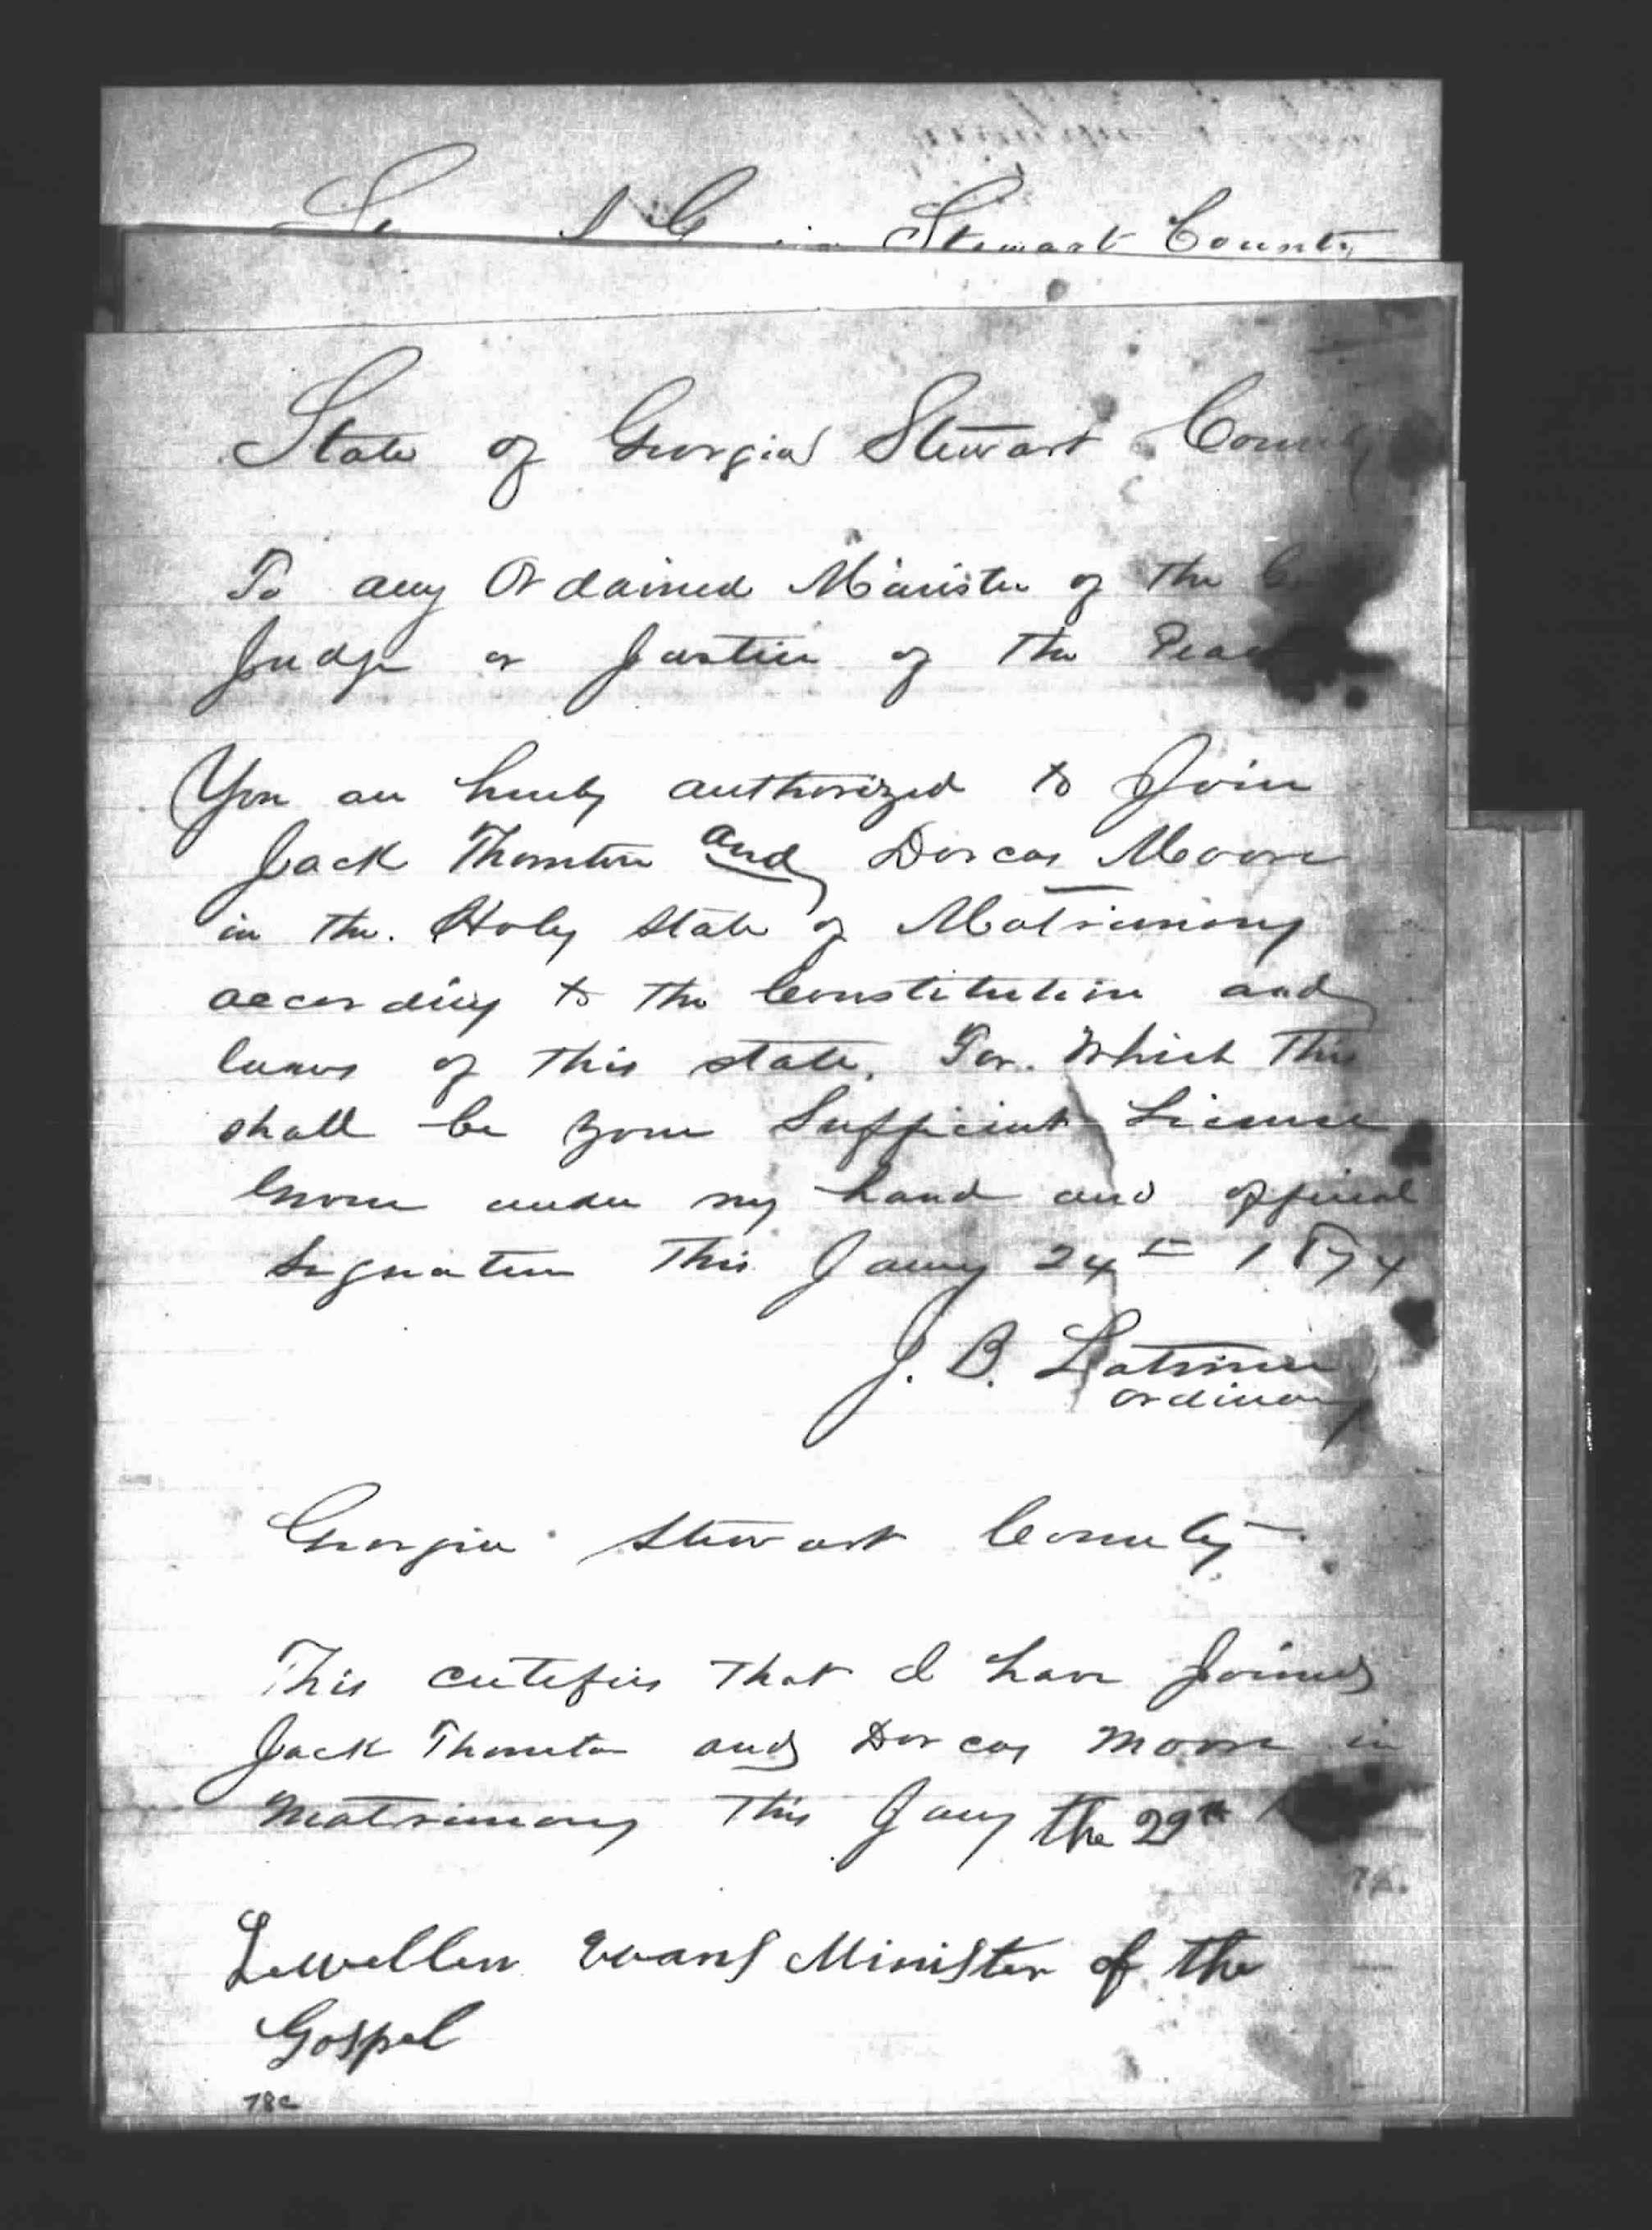 Stewart County
State of Georgia Stewart County
To any Ordained Minister of the
Judge or Justice of the Peace
You are hereby authorized to Join
Jack Thornton and Dorcas Moore
in the Holy State of Matrimony
according to the Constitution and
laws of this state. For which this
shall be your Sufficient License
Given under my hand and official
Signature This Jany 24th 1874
J. B. Latimer
ordinary
Georgia Stewart County
This certefies that I have Joined
Jack Thornton and Dorcas Moore in
Matrimony This Jany the 29th
74.
Lewellen Evans Minister of the
Gospel
78c